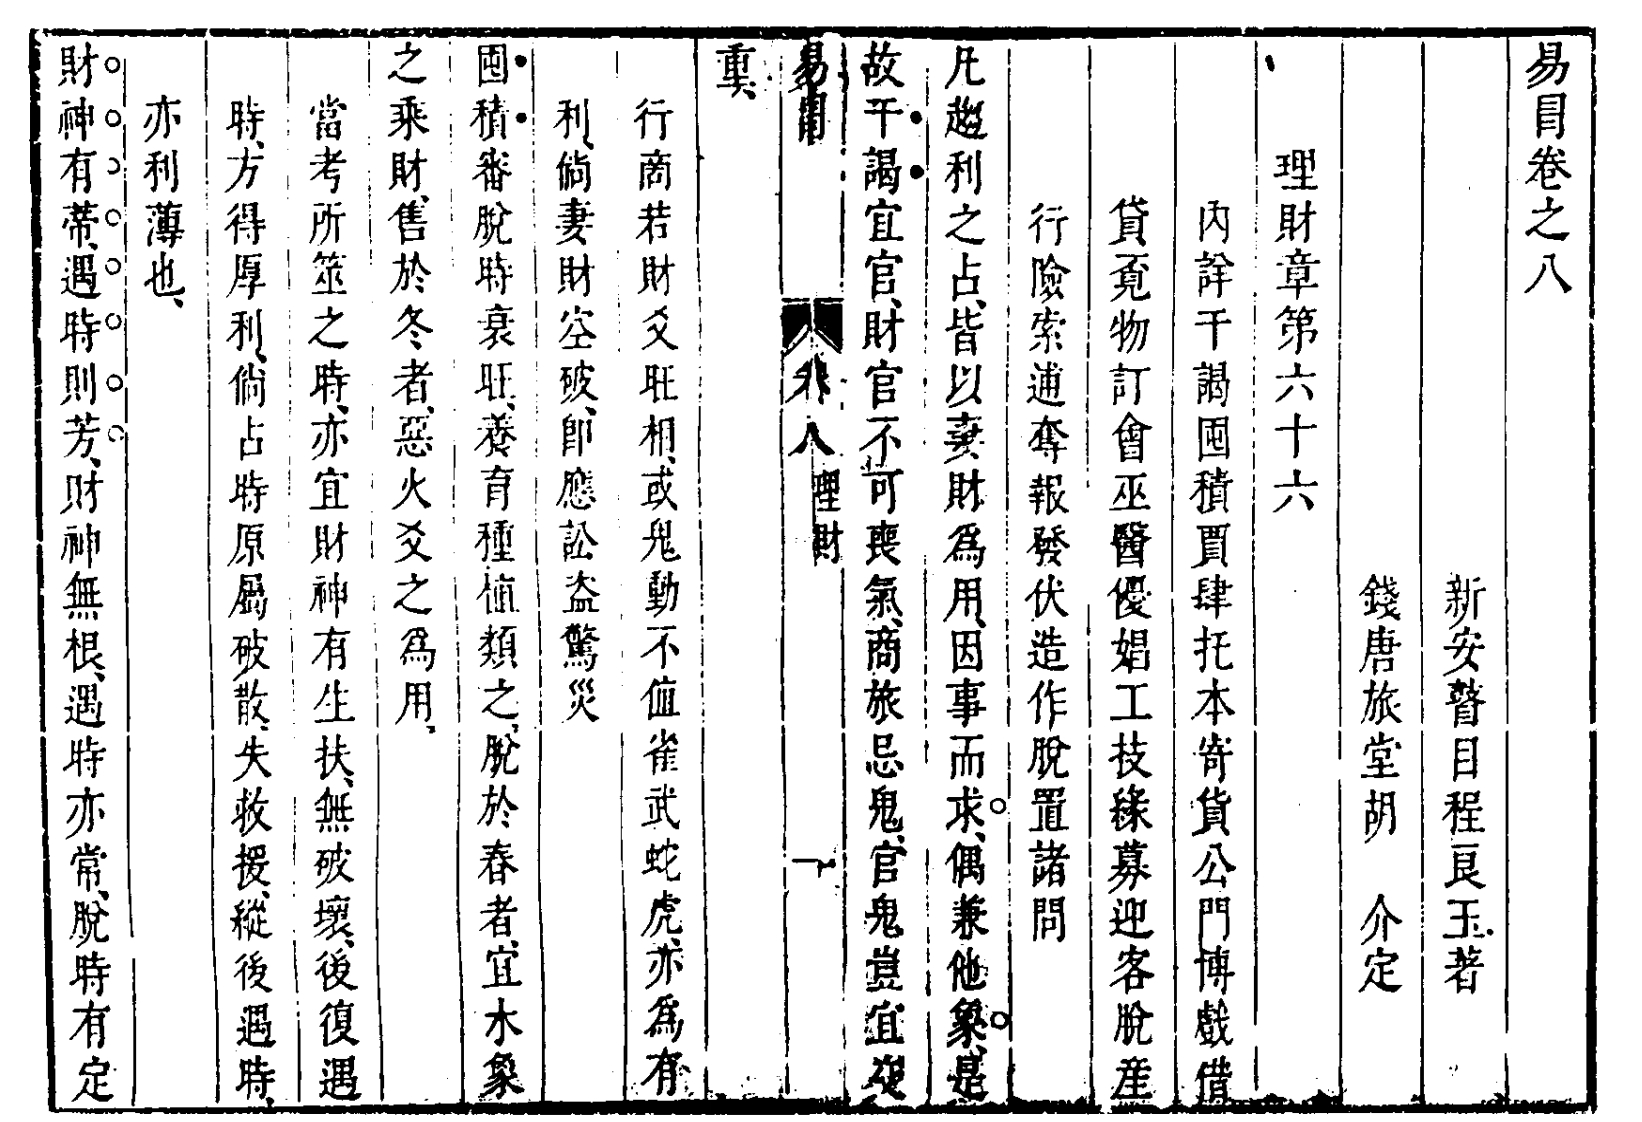 易冒卷之八
新安瞽目程良玉著
錢唐旅堂胡　介定
理財章第六十六
內詳干謁囤積賈肆托本寄貨公門博戲借
貸覔物訂會巫醫優娼工技緣募迎客脫產
行險索逋奪報發伏造作脫置諸問
凡趨利之占、皆以妻財爲用、因事而求、偶兼他象、是
故干謁宜官、財官不可喪氣、商旅忌鬼、官鬼豈宜複
易冒
卷八
理財
一
重、
行商若財爻旺相、或鬼動不値雀武蛇虎、亦爲有
利、倘妻財空破、卽應訟盜驚災
囤積番脫時衰旺、養育種植類之、脫於春者、宜木象
之乘財、售於冬者、惡火爻之爲用、
當考所筮之時、亦宜財神有生扶、無破壞、後復遇
時、方得厚利、倘占時原屬破散、失救援、縱後遇時、
亦利薄也、
財神有蒂、遇時則芳、財神無根、遇時亦常、脫時有定